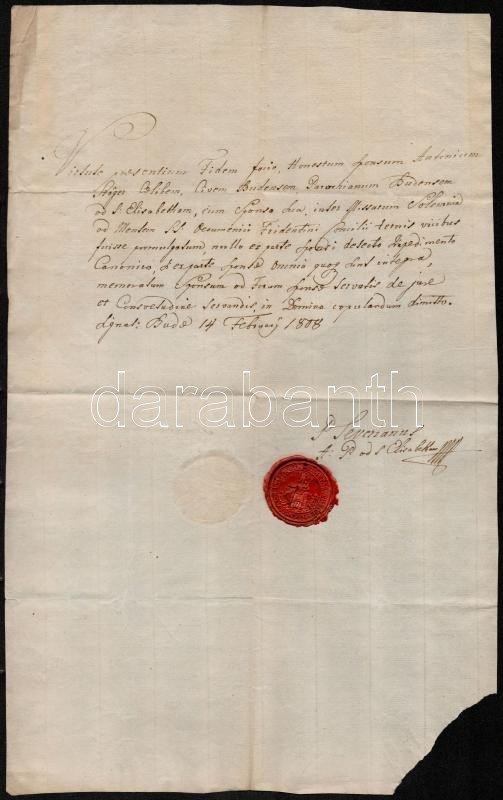 Virtute praesentium Fidem facio, Honestum sponsum Antonium
Caelibem, Civem Budensem Parochianum Budensem
ad S. Elisabetham, cum Sponsa sua, inter Missarum Solemnia
ad Mentem SS. Oecumenii Tridentini Concilii ternis vicibus
fuisse promulgatum nullo ex parte sponsi detecto Impedimento
Canonico, si ex parte sponsae omnia quoque sint integra,
memoratum Sponsum ad Forum sponsae servatis de jure
et Consvetudine servandis, in Domino copulandum dimitto.
Signat: Budae 14 Februarij 1808
darabanth
P. Severianus
A: P. ad S Elisabetham